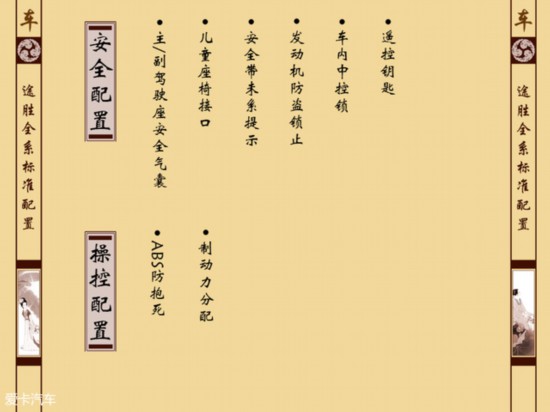 车
途胜全系标准配置
安全配置
•主/副驾驶座安全气囊
•儿童座椅接口
•安全带未系提示
•发动机防盗锁止
•车内中控锁
•遥控钥匙
操控配置
•ABS防抱死
•制动力分配
车
途胜全系标准配置
爱卡汽车